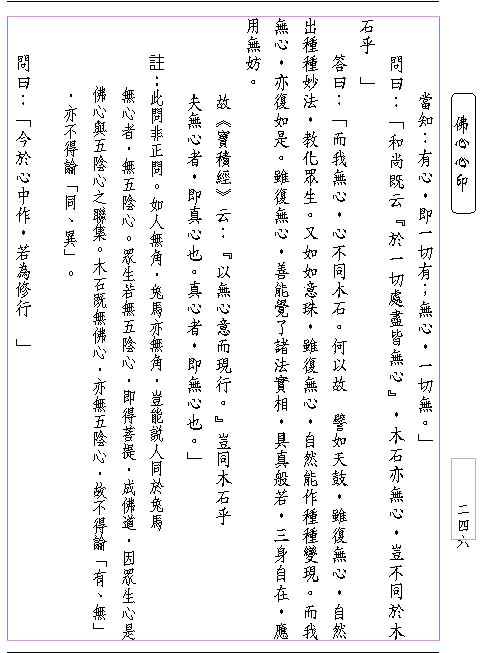 佛心心印
二四六
當知：有心，即一切有；無心，一切無。」
問曰：「和尚既云『於一切處盡皆無心』，木石亦無心，豈不同於木
石乎　」
答曰：「而我無心，心不同木石。何以故　譬如天鼓，雖復無心，自然
出種種妙法，教化眾生。又如如意珠，雖復無心，自然能作種種變現。而我
無心，亦復如是。雖復無心，善能覺了諸法實相，具真般若，三身自在，應
用無妨。
故《寶積經》云：『以無心意而現行。』豈同木石乎
夫無心者，即真心也。真心者，即無心也。」
註：此問非正問。如人無角，兔馬亦無角，豈能說人同於兔馬
無心者，無五陰心。眾生若無五陰心，即得菩提，成佛道，因眾生心是
佛心與五陰心之聯集。木石既無佛心，亦無五陰心，故不得論「有、無」
，亦不得論「同、異」。
問曰：「今於心中作，若為修行　」